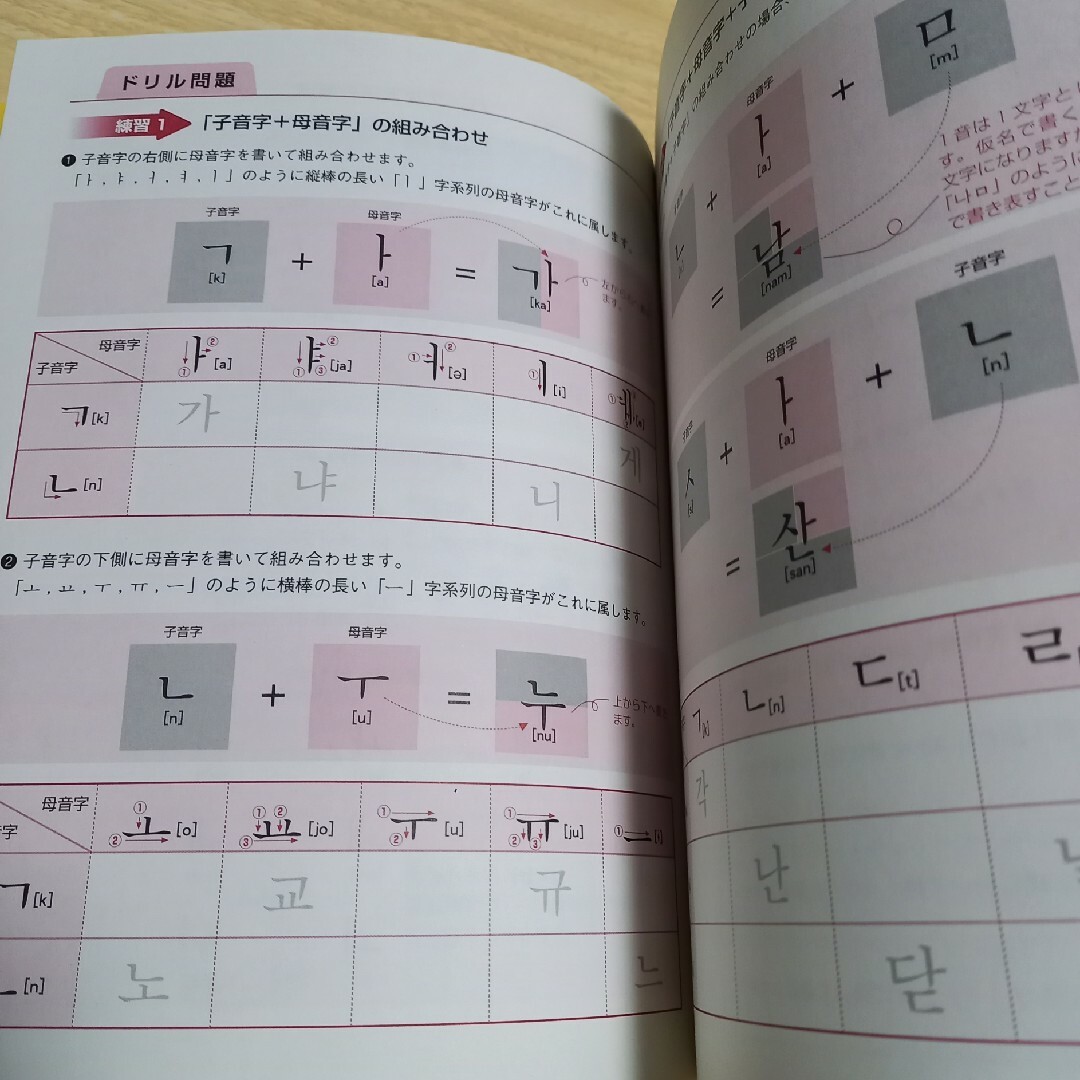 ドリル問題
練習1 「子音字＋母音字」の組み合わせ
❶ 子音字の右側に母音字を書いて組み合わせます。
「ㅏ, ㅑ, ㅓ, ㅕ, ㅣ」のように縦棒の長い「ㅣ」字系列の母音字がこれに属します。
子音字 母音字
ㄱ + ㅏ = 가
[k] [a] [ka]
母音字
子音字
①② ㅏ [a] ①②③ ㅑ [ja] ①② ㅓ [ə] ① ㅣ [i]
ㄱ [k] 가 게
ㄴ [n] 냐 니
❷ 子音字の下側に母音字を書いて組み合わせます。
「ㅗ, ㅛ, ㅜ, ㅠ, ㅡ」のように横棒の長い「ㅡ」字系列の母音字がこれに属します。
子音字 母音字
ㄴ + ㅜ = 누
[n] [u] [nu]
上から下へ
ます。
母音字
字
①② ㅗ [o] ①②③ ㅛ [jo] ①② ㅜ [u] ①②③ ㅠ [ju] ① ㅡ
ㄱ [k] 교 규
ㄴ [n] 노 느
母音字
+ ㅏ + ㅁ
[a] [m]
= 남
[nam]
1音は1文字とし
す。仮名で書く
文字になりますが
「나ㅁ」のように
で書き表すこと
子音字
母音字
子音字
ㅅ + ㅏ + ㄴ
[s] [a] [n]
= 산
[san]
ㄱ [k] ㄴ [n] ㄷ [t] ㄹ
각
난
닫